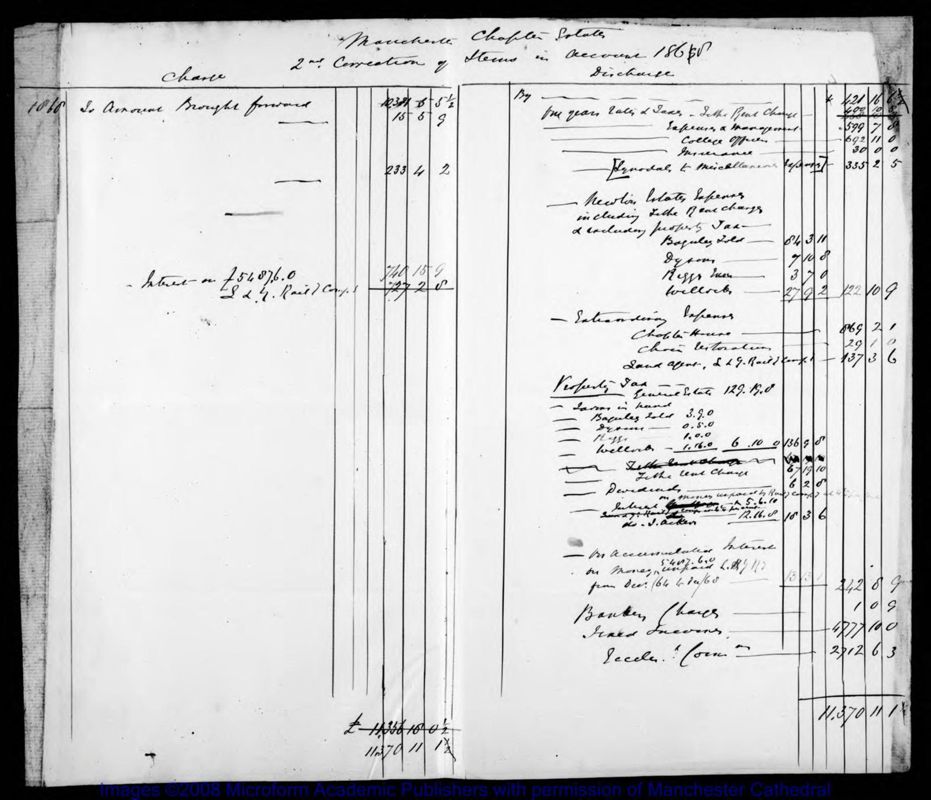 Manchester Chapter Estates
2nd Correction of Items in Account 1868
Charge
Discharge
1868 To Amount Brought forward
15 5 9
233 4 2
Interest on £54876.0 740 15 9
L & Y. Raild Comp. 727 2 8
£ 11,356 18 0½
11,370 11 1½
By 421 16
One years Rates & Taxes - Tithe Rent Charge
Expenses & Management 599 7 8
College Officers 692 11 0
Insurance 30 0 0
[Synodals to Miscellaneous Expenses] 335 2 5
Newton Estates Expenses
including Tithe Rent charges
& excluding property Tax
Baguley Fold 84 3 11
Dysons 7 10 8
Riggs 3 7 0
Wellocks 27 9 2 122 10 9
Extraordinary Expenses
Chapter House 869 2 1
Choir restoration 29 1 0
Land Agent, L & Y. Raild Comp. 437 3 6
Property Tax
General Estate 129.19.8
Farms in hand
Baguley Fold 3.9.0
Dysons 0.5.0
Riggs 1.0.0
Wellocks 1.16.0 6.10 0 136 9 8
Tithe Rent Charge
Tithe Rent Charge 67 19 10
Dividends 6 2 8
on money unpaid by Raild Comp.
Interest 5.6.10
do. J. 12.16.8 18 3 6
On Accumulated Interest
on Money unpaid L. & Y. Rd
from Decr. /64 to /68 13 13 1 242 8 9
Bankers Charges 1 0 9
Fixed Incomes 4777 10 0
Eccles.l Comm.n 2712 6 3
11,370 11 1½
Images ©2008 Microform Academic Publishers with permission of Manchester Cathedral